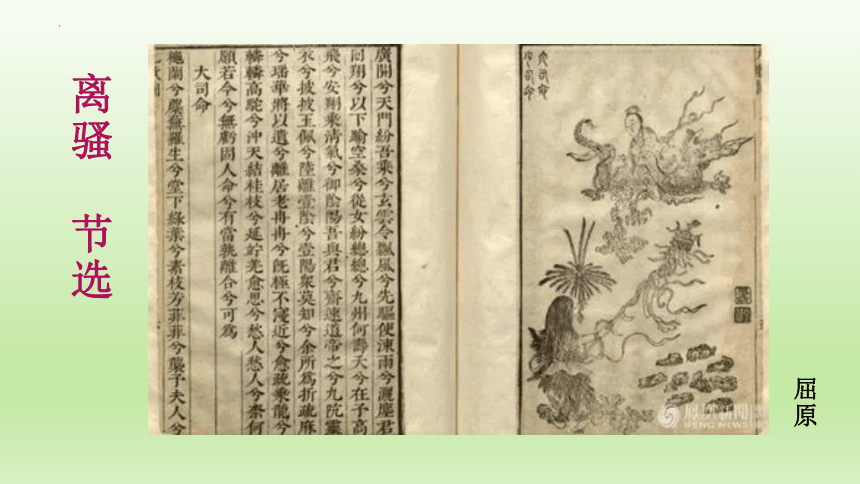 离骚 节选
廣開兮天門紛吾乘兮玄雲令飄風兮先驅使涷雨兮灑塵君
回翔兮以下踰空桑兮從女紛總總兮九州何壽夭兮在予高
飛兮安翔乘清氣兮御陰陽吾與君兮齋速道帝之兮九阬靈
衣兮披披玉佩兮陸離壹陰兮壹陽衆莫知兮余所爲折疏麻
兮瑤華將以遺兮離居老冉冉兮既極不寖近兮愈疏乘龍兮
轔轔高駝兮沖天結桂枝兮延竚羌愈思兮愁人愁人兮柰何
願若今兮無虧固人命兮有當孰離合兮可爲
大司命
穐蘭兮麋蕪羅生兮堂下綠葉兮素枝芳菲菲兮襲予夫人兮
大司命
少司命
鳳凰新聞
IFENG NEWS
屈原